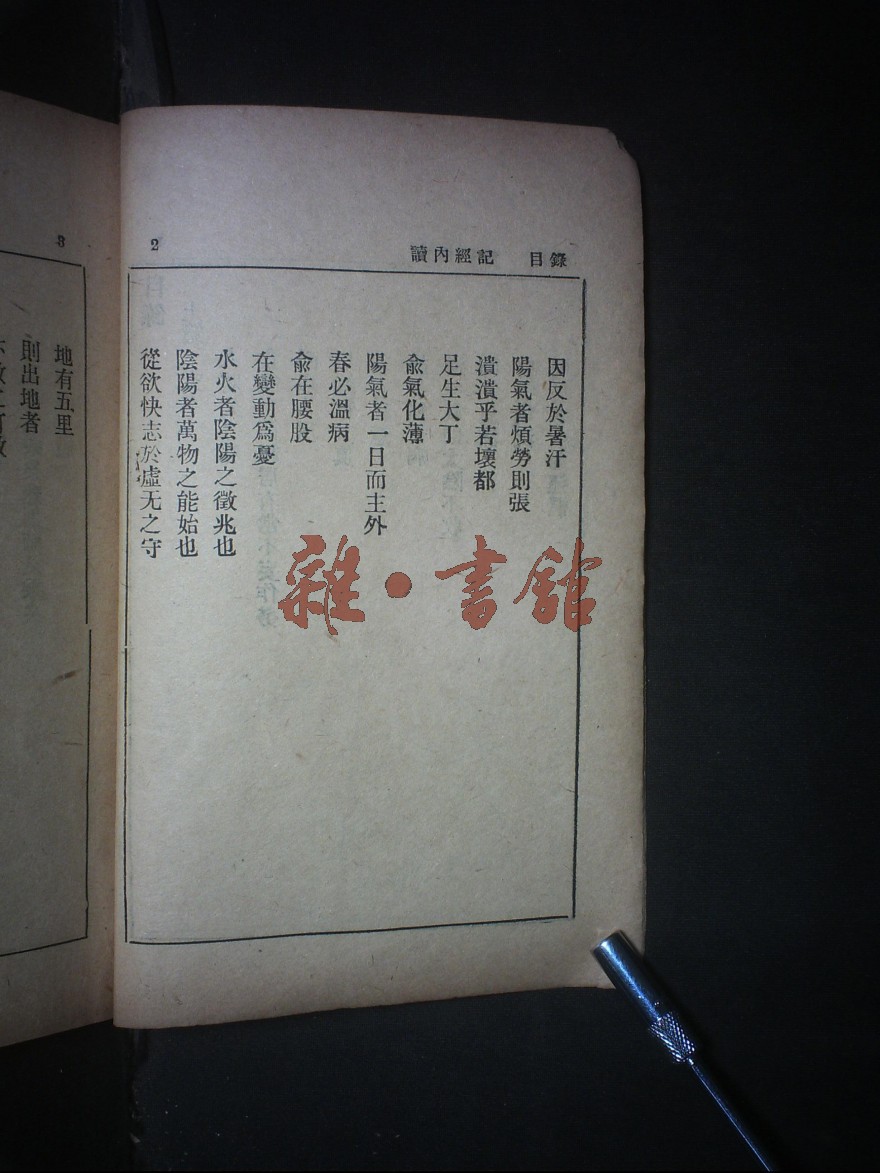 讀內經記　目錄
2
因反於暑汗
陽氣者煩勞則張
潰潰乎若壞都
足生大丁
俞氣化薄
陽氣者一日而主外
春必溫病
俞在腰股
在變動爲憂
水火者陰陽之徵兆也
陰陽者萬物之能始也
從欲快志於虛无之守
雜·書館
3
地有五里
則出地者